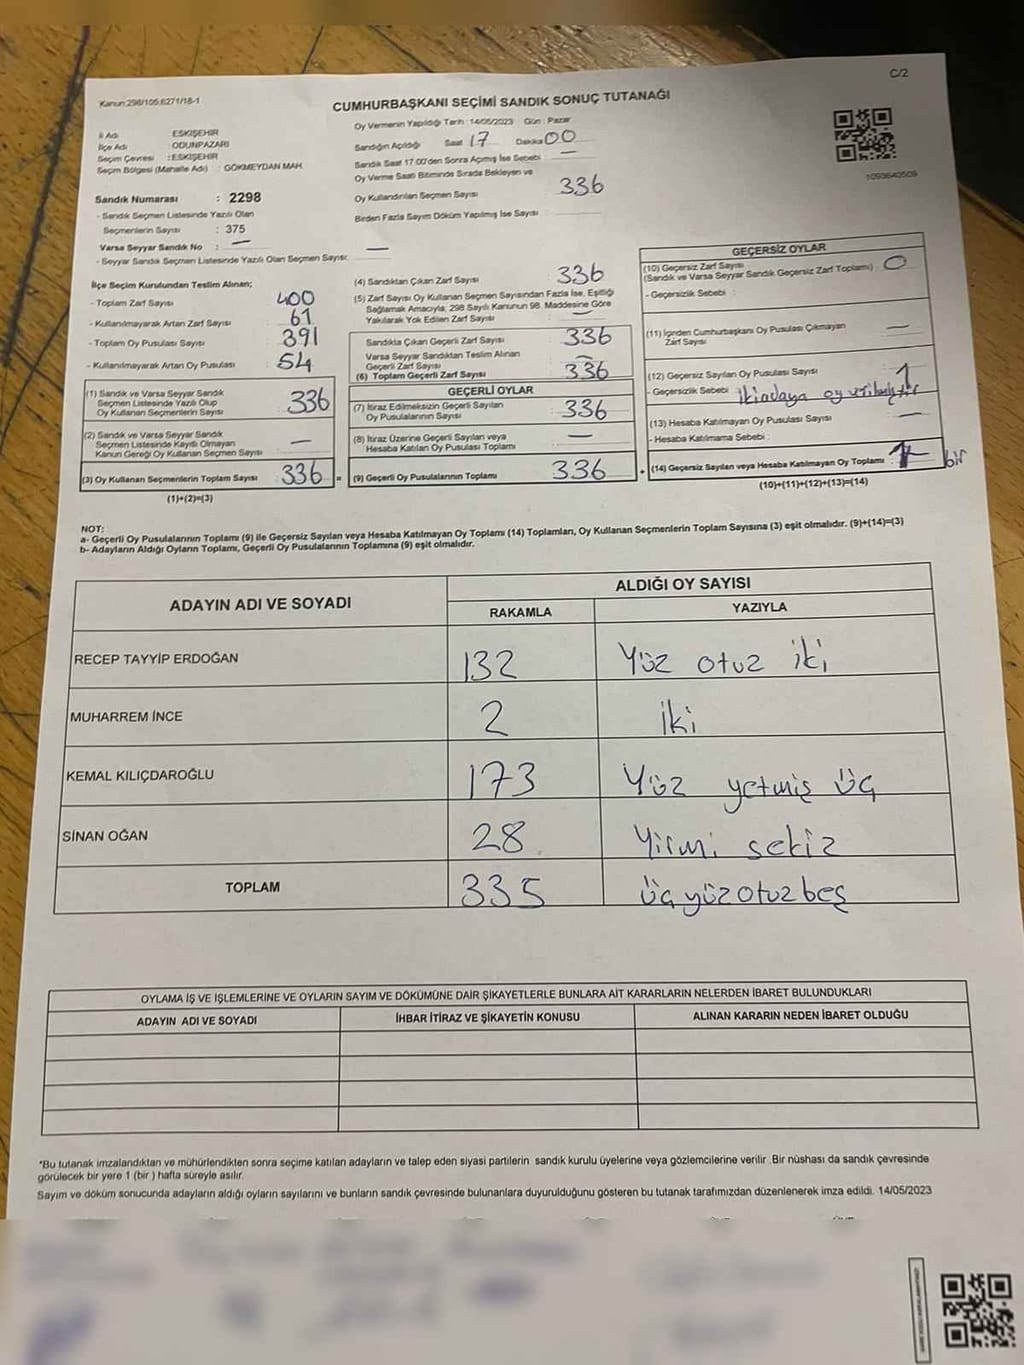 C/2
Kanun:298/105;6271/18-1
CUMHURBAŞKANI SEÇİMİ SANDIK SONUÇ TUTANAĞI
İl Adı : ESKİŞEHİR
İlçe Adı : ODUNPAZARI
Seçim Çevresi : ESKİŞEHİR
Seçim Bölgesi (Mahalle Adı) : GÖKMEYDAN MAH.
Sandık Numarası : 2298
- Sandık Seçmen Listesinde Yazılı Olan
Seçmenlerin Sayısı : 375
Varsa Seyyar Sandık No : —
- Seyyar Sandık Seçmen Listesinde Yazılı Olan Seçmen Sayısı: —
Oy Vermenin Yapıldığı Tarih : 14/05/2023 Gün : Pazar
Sandığın Açıldığı Saat 17 Dakika 00
Sandık Saat 17:00'den Sonra Açılmış İse Sebebi : —
Oy Verme Saati Bitiminde Sırada Bekleyen ve
Oy Kullandırılan Seçmen Sayısı 336
Birden Fazla Sayım Döküm Yapılmış İse Sayısı :
1093640509
İlçe Seçim Kurulundan Teslim Alınan;
- Toplam Zarf Sayısı : 400
- Kullanılmayarak Artan Zarf Sayısı : 61
- Toplam Oy Pusulası Sayısı : 391
- Kullanılmayarak Artan Oy Pusulası : 54
(1) Sandık ve Varsa Seyyar Sandık
Seçmen Listesinde Yazılı Olup
Oy Kullanan Seçmenlerin Sayısı : 336
(2) Sandık ve Varsa Seyyar Sandık
Seçmen Listesinde Kayıtlı Olmayan
Kanun Gereği Oy Kullanan Seçmen Sayısı : —
(3) Oy Kullanan Seçmenlerin Toplam Sayısı : 336 =
(1)+(2)=(3)
(4) Sandıktan Çıkan Zarf Sayısı : 336
(5) Zarf Sayısı Oy Kullanan Seçmen Sayısından Fazla İse, Eşitliği
Sağlamak Amacıyla, 298 Sayılı Kanunun 98. Maddesine Göre
Yakılarak Yok Edilen Zarf Sayısı : —
Sandıkta Çıkan Geçerli Zarf Sayısı : 336
Varsa Seyyar Sandıktan Teslim Alınan
Geçerli Zarf Sayısı : —
(6) Toplam Geçerli Zarf Sayısı : 336
GEÇERLİ OYLAR
(7) İtiraz Edilmeksizin Geçerli Sayılan
Oy Pusulalarının Sayısı : 336
(8) İtiraz Üzerine Geçerli Sayılan veya
Hesaba Katılan Oy Pusulası Toplamı : —
(9) Geçerli Oy Pusulalarının Toplamı : 336 +
GEÇERSİZ OYLAR
(10) Geçersiz Zarf Sayısı
(Sandık ve Varsa Seyyar Sandık Geçersiz Zarf Toplamı) : 0
- Geçersizlik Sebebi :
(11) İçinden Cumhurbaşkanı Oy Pusulası Çıkmayan
Zarf Sayısı : —
(12) Geçersiz Sayılan Oy Pusulası Sayısı : 1
- Geçersizlik Sebebi : iki adaya oy verilmiştir
(13) Hesaba Katılmayan Oy Pusulası Sayısı : —
- Hesaba Katılmama Sebebi :
(14) Geçersiz Sayılan veya Hesaba Katılmayan Oy Toplamı : 1 bir
(10)+(11)+(12)+(13)=(14)
NOT:
a- Geçerli Oy Pusulalarının Toplamı (9) ile Geçersiz Sayılan veya Hesaba Katılmayan Oy Toplamı (14) Toplamları, Oy Kullanan Seçmenlerin Toplam Sayısına (3) eşit olmalıdır. (9)+(14)=(3)
b- Adayların Aldığı Oyların Toplamı, Geçerli Oy Pusulalarının Toplamına (9) eşit olmalıdır.
ADAYIN ADI VE SOYADI
ALDIĞI OY SAYISI
RAKAMLA YAZIYLA
RECEP TAYYİP ERDOĞAN 132 Yüz otuz iki
MUHARREM İNCE 2 iki
KEMAL KILIÇDAROĞLU 173 Yüz yetmiş üç
SİNAN OĞAN 28 Yirmi sekiz
TOPLAM 335 üçyüzotuzbeş
OYLAMA İŞ VE İŞLEMLERİNE VE OYLARIN SAYIM VE DÖKÜMÜNE DAİR ŞİKAYETLERLE BUNLARA AİT KARARLARIN NELERDEN İBARET BULUNDUKLARI
ADAYIN ADI VE SOYADI İHBAR İTİRAZ VE ŞİKAYETİN KONUSU ALINAN KARARIN NEDEN İBARET OLDUĞU
*Bu tutanak imzalandıktan ve mühürlendikten sonra seçime katılan adayların ve talep eden siyasi partilerin sandık kurulu üyelerine veya gözlemcilerine verilir .Bir nüshası da sandık çevresinde
görülecek bir yere 1 (bir ) hafta süreyle asılır.
Sayım ve döküm sonucunda adayların aldığı oyların sayılarını ve bunların sandık çevresinde bulunanlara duyurulduğunu gösteren bu tutanak tarafımızdan düzenlenerek imza edildi. 14/05/2023